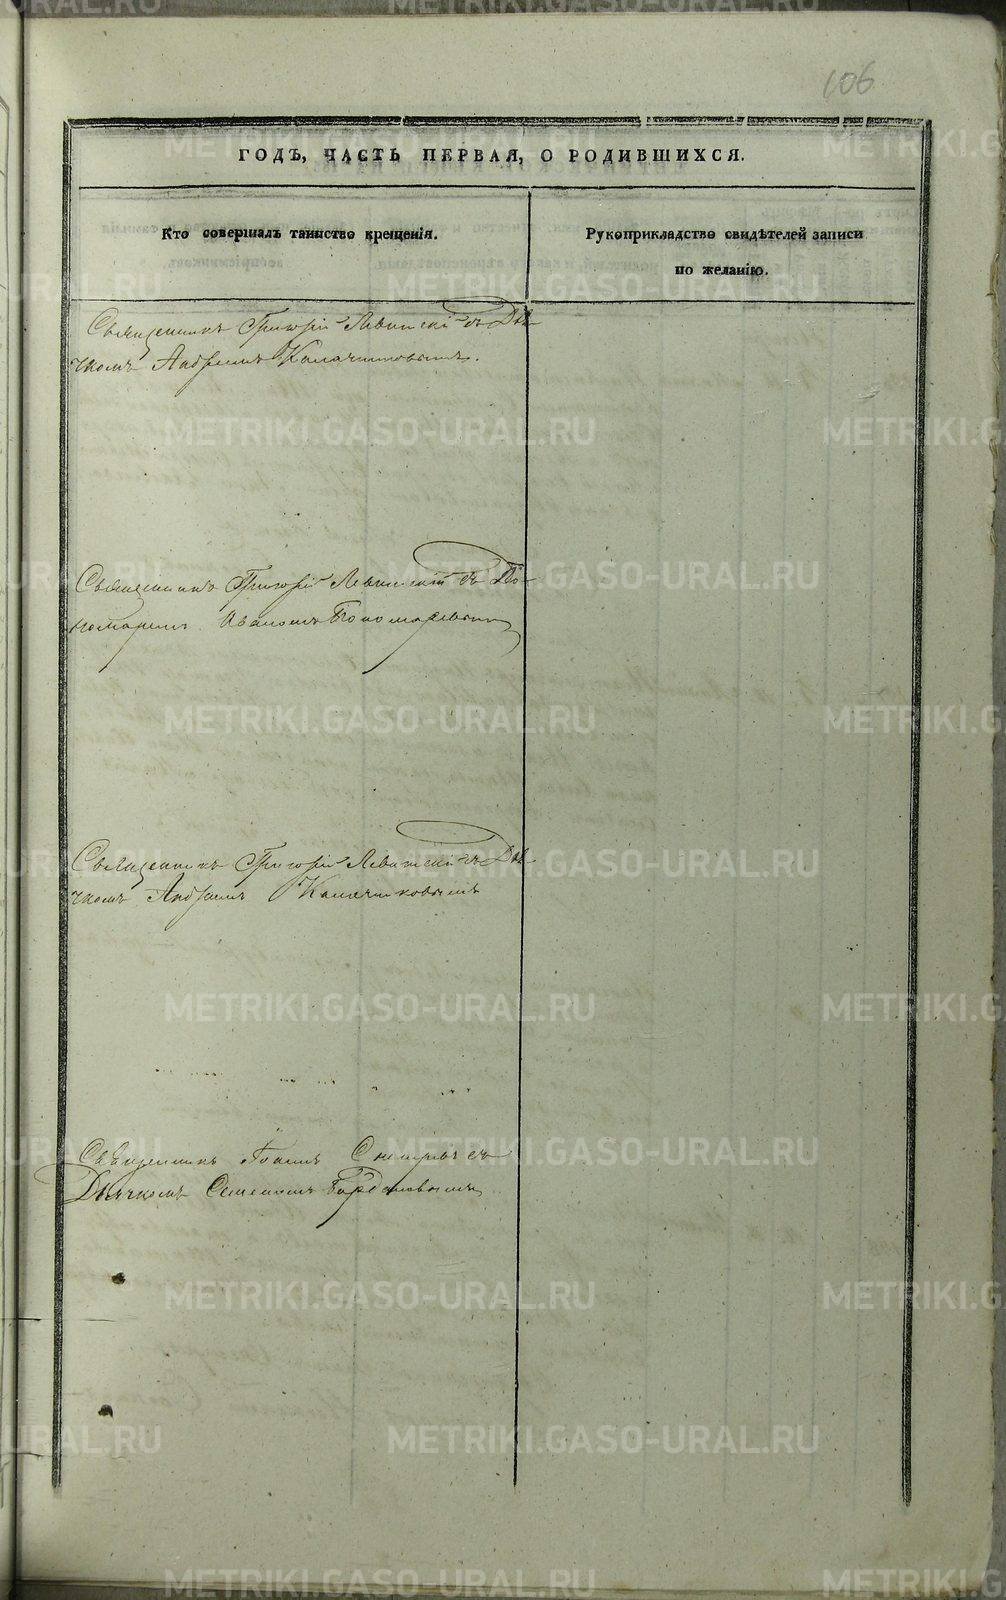 106
ГОДЪ, ЧАСТЬ ПЕРВАЯ, О РОДИВШИХСЯ.
Кто совершалъ таинство крещенія.
Рукоприкладство свидѣтелей записи
по желанію.
Священникъ Григорій Левитскій съ Дья-
чкомъ Андреемъ Калачниковымъ.
Священникъ Григорій Левитскій съ По-
номаремъ Иваномъ Пономаревымъ
Священникъ Григорій Левитскій съ Дья-
чкомъ Андреемъ Калачниковымъ
Священникъ Іоаннъ съ
Дьячкомъ Семеномъ
METRIKI.GASO-URAL.RU